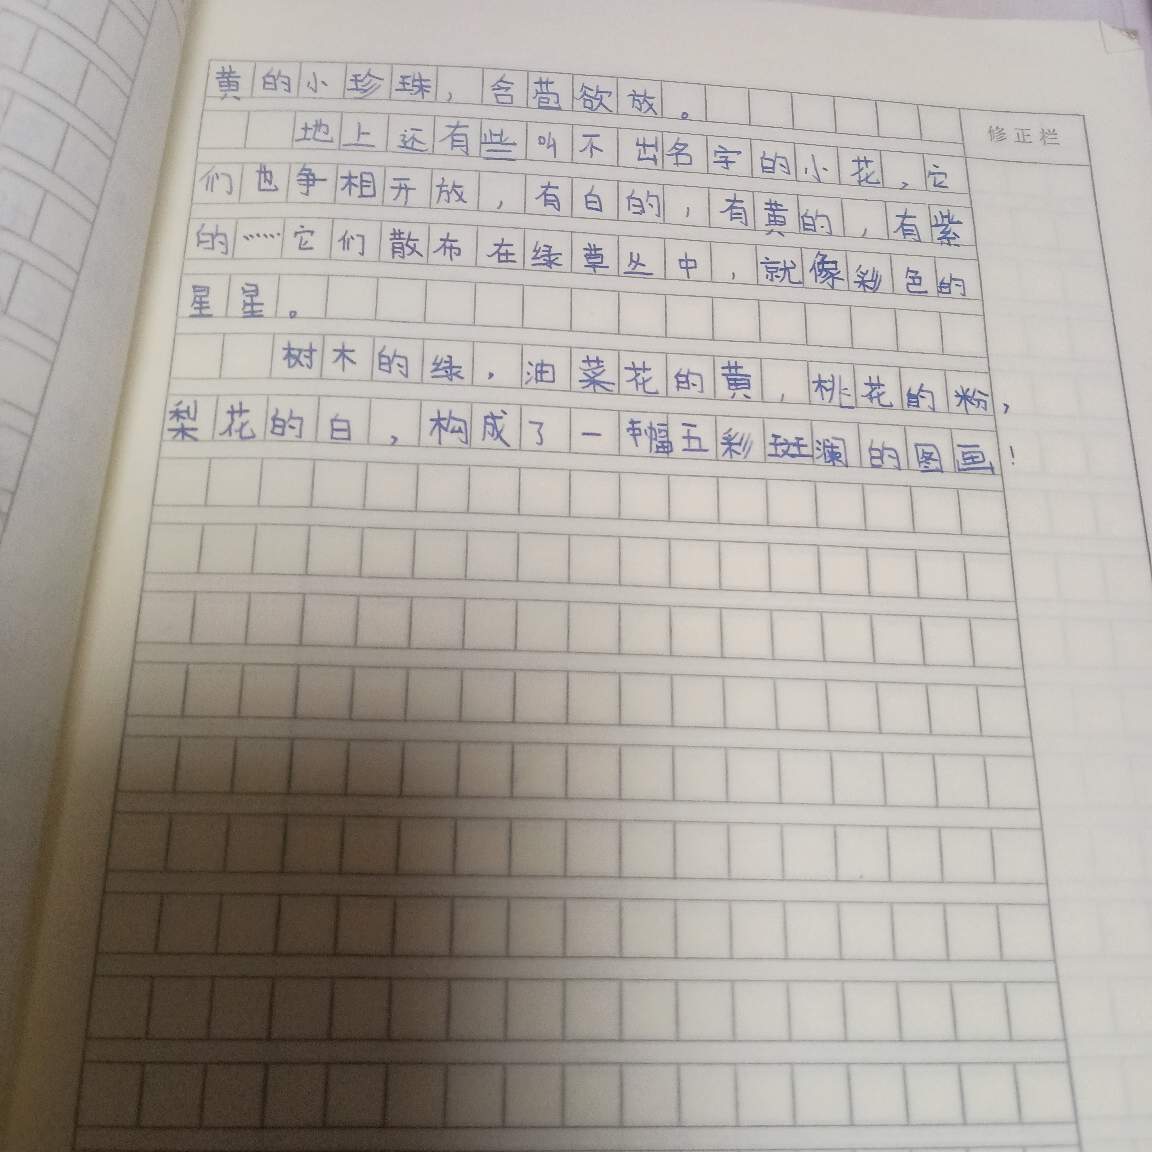 黄的小珍珠，含苞欲放。
修正栏
地上还有些叫不出名字的小花，它
们也争相开放，有白的，有黄的，有紫
的……它们散布在绿草丛中，就像彩色的
星星。
树木的绿，油菜花的黄，桃花的粉，
梨花的白，构成了一幅五彩斑斓的图画！